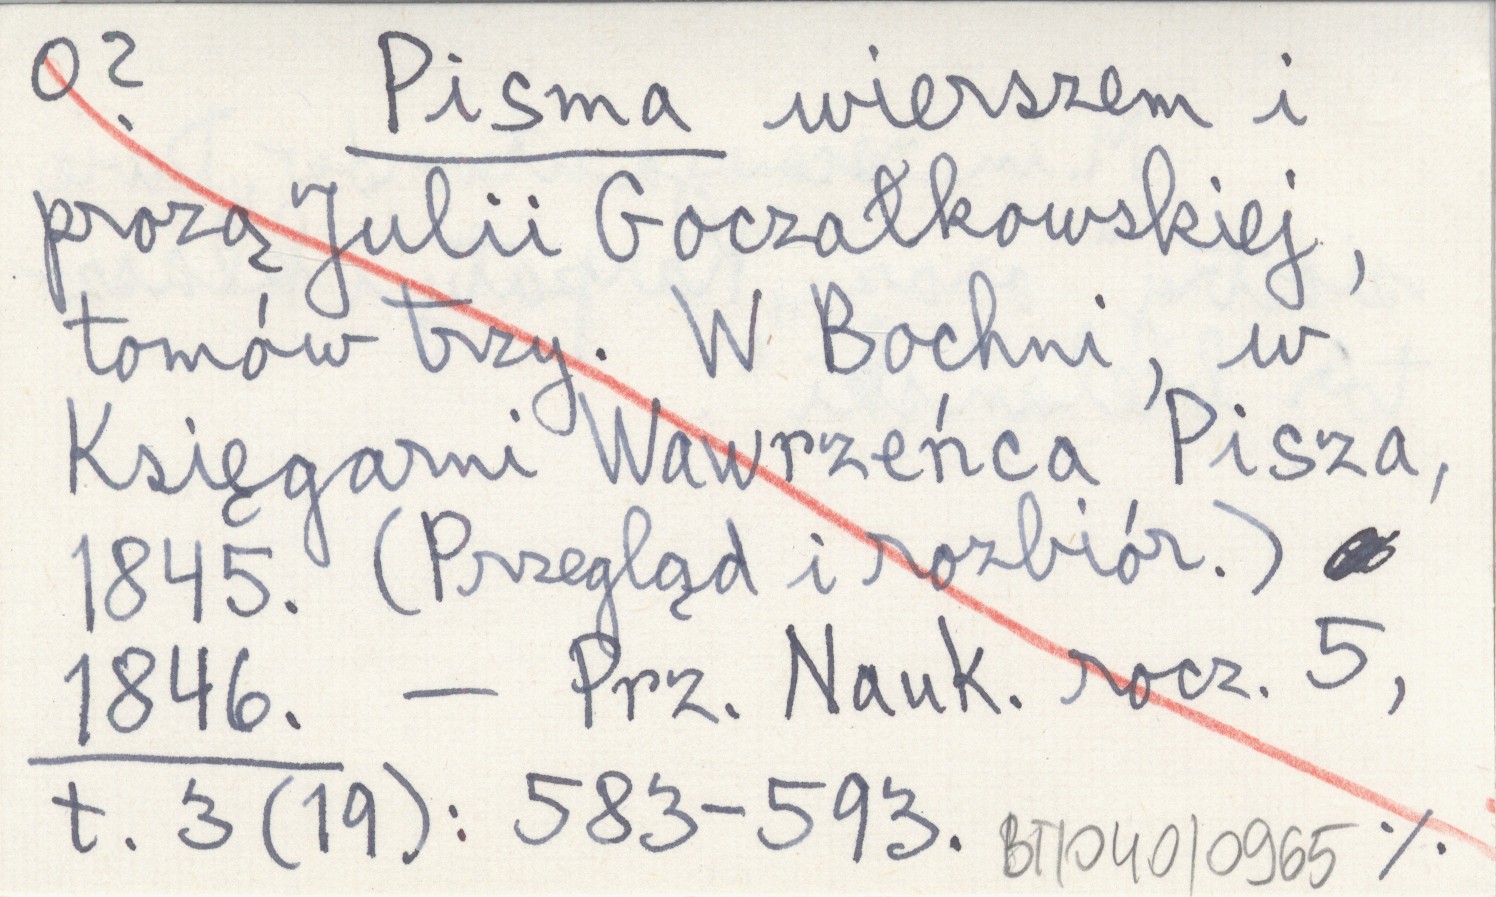 O? Pisma wierszem i
prozą Julii Goczałkowskiej,
tomów trzy. W Bochni, w
Księgarni Wawrzeńca Pisza,
1845. (Przegląd i rozbiór.)
1846. — Prz. Nauk. rocz. 5,
t. 3 (19): 583-593.
BT/040/0965 ·/.